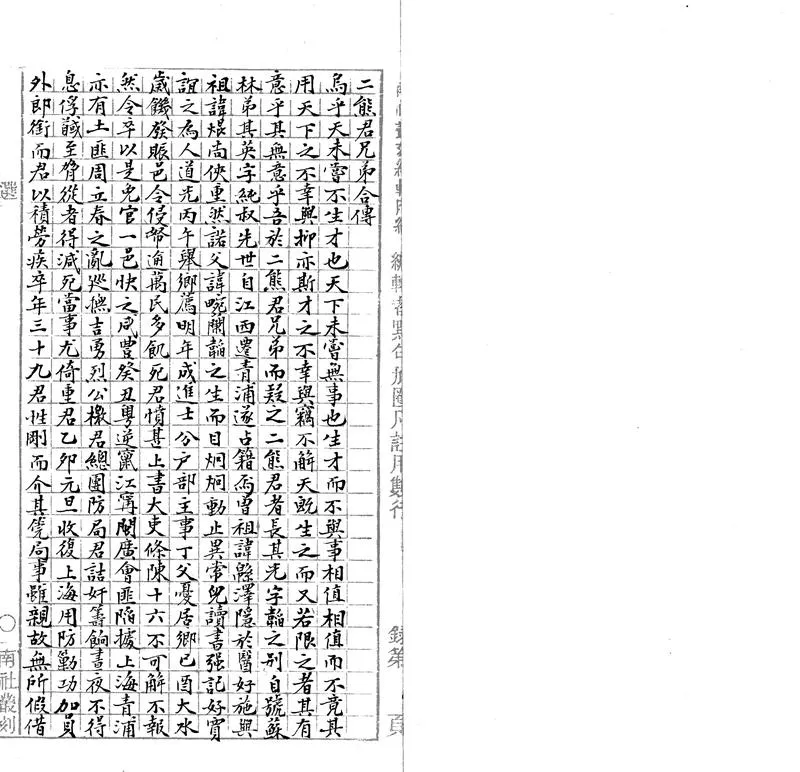 二熊君兄弟合傳
烏乎天未嘗不生才也天下未嘗無事也生才而不與事相值相值而不竟其
用天下之不幸與抑亦斯才之不幸與竊不解天既生之而又若限之者其有
意乎其無意乎吾於二熊君兄弟而疑之二熊君者長其光字韜之別自號蘇
林弟其英字純叔先世自江西遷青浦遂占籍焉曾祖諱緜澤隱於醫好施與
祖諱焜尚俠重然諾父諱畹關韜之生而目炯炯動止異常兒讀書强記好賈
誼之為人道光丙午舉鄉薦明年成進士分戶部主事丁父憂居鄉已酉大水
歲饑發賑邑令侵帑逾萬民多飢死君憤甚上書大吏條陳十六不可解不報
然令卒以是免官一邑快之咸豐癸丑粵逆竄江寧閩廣會匪陷據上海青浦
亦有土匪周立春之亂巡撫吉勇烈公檄君總團防局君詰奸籌餉晝夜不得
息俘馘至脅從者得減死當事尤倚重君乙卯元旦收復上海用防勦功加員
外郎銜而君以積勞疾卒年三十九君性剛而介其筦局事雖親故無所假借
選 〇 南社叢刻
錄第 頁